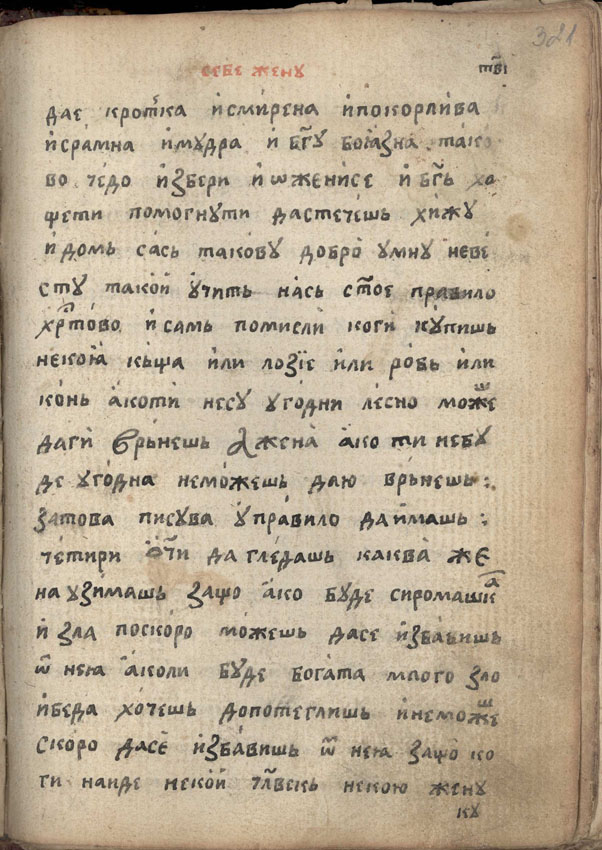 321
себе женꙋ
тв҃і
дае кротка и҆смѝрена и҆покорлѝва
и҆срамна и҆мꙋдра и҆ бг҃ꙋ боꙗ҆зна тако
во чедо и҆збери и҆ ѡ҆женисе и҆ бг҃ь хо
щети помогнꙋти дастечешь хижꙋ
и҆ домь сась таковꙋ добро̀ ꙋмнꙋ неве
стꙋ такоѝ ꙋ҆чить нась ст҃ое правило
хр҃тово и҆ самь помислѝ когѝ кꙋпишь
некоꙗ҆ кьща и҆ли лозїе и҆ли робь и҆ли
конь а҆коти несꙋ ꙋгодни лесно може ш
дагѝ врьнешь а҆ жена̀ а҆ко ти небꙋ
де ꙋгодна неможешь даю врьнешь :
затова писꙋва ꙋ҆ правило даи҆машь :
четири ѻ҆чѝ да гледашь каква̀ же
на ꙋзимашь защо а҆ко бꙋде сиромашка
и҆ зла поскоро можешь дасе и҆збавишь
ѿ нею а҆коли бꙋде богата много зло
и҆беда хочешь допотеглишь и҆неможе ш
скоро дасѐ и҆збавишь ѿ нею защо̀ ко
ги наиде некоѝ чл҃векь некою женꙋ
кꙋ